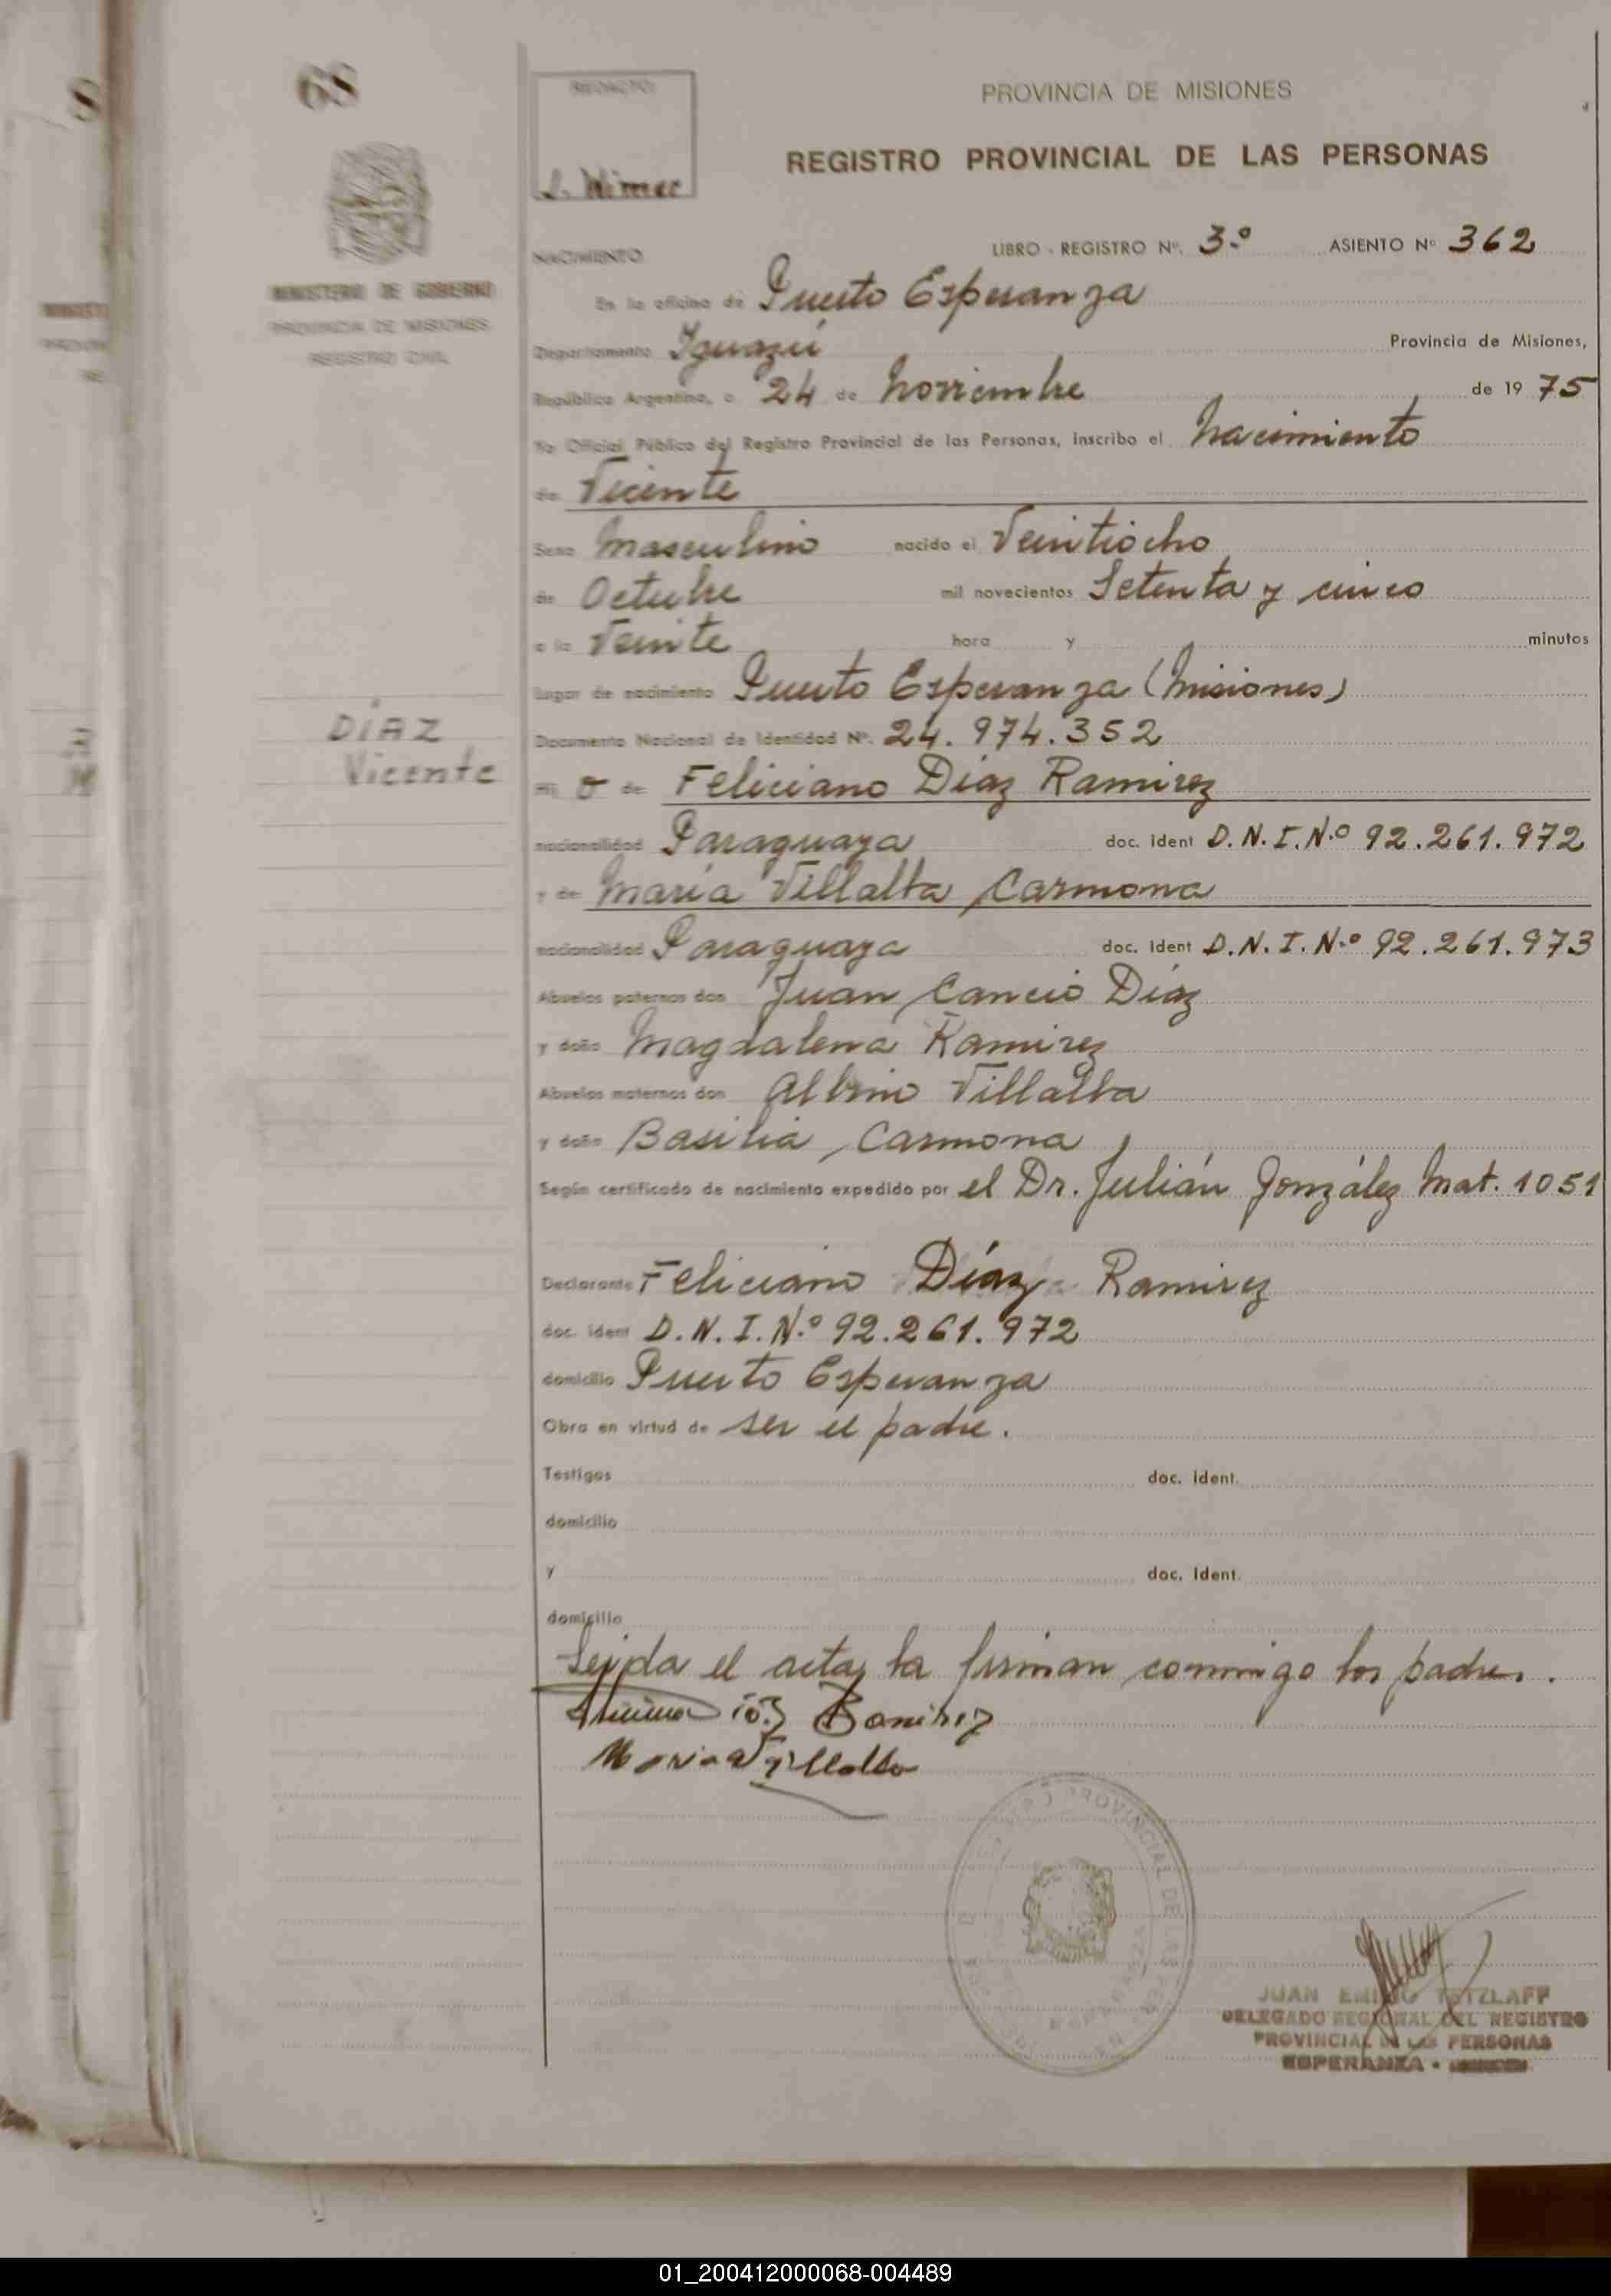 68
8
REDACTO:
MINISTERIO DE GOBIERNO
PROVINCIA DE MISIONES
REGISTRO CIVIL
PROVINCIA DE MISIONES
REGISTRO PROVINCIAL DE LAS PERSONAS
NACIMIENTO
LIBRO - REGISTRO Nº. 3.º ASIENTO Nº 362
En la oficina de Puerto Esperanza
Departamento Iguazú Provincia de Misiones,
República Argentina, a 24 de Noviembre de 19 75
Yo Oficial Público del Registro Provincial de las Personas, inscribo el Nacimiento
de Vicente
Sexo Masculino nacido el Veintiocho
de Octubre mil novecientos Setenta y cinco
a la Veinte hora y minutos
Lugar de nacimiento Puerto Esperanza (Misiones)
DíAZ
Vicente
Documento Nacional de Identidad Nº. 24.974.352
Hij o de Feliciano Díaz Ramirez
nacionalidad Paraguaya doc. ident D.N.I.N.º 92.261.972
y de María Villalba Carmona
nacionalidad Paraguaya doc. ident D.N.I.N.º 92.261.973
Abuelos paternos don Juan Cancio Díaz
y doña Magdalena Ramirez
Abuelos maternos don Albino Villalba
y doña Basilia Carmona
Según certificado de nacimiento expedido por el Dr. Julián González Mat. 1051
Declarante Feliciano Díaz Ramirez
doc. ident D.N.I.N.º 92.261.972
domicilio Puerto Esperanza
Obra en virtud de ser el padre.
Testigos doc. ident.
domicilio
y doc. ident.
domicilio
Leída el acta, la firman conmigo los padres.
JUAN EMILIO TETZLAFF
DELEGADO REGIONAL DEL REGISTRO
PROVINCIAL DE LAS PERSONAS
ESPERANZA -
01_200412000068-004489